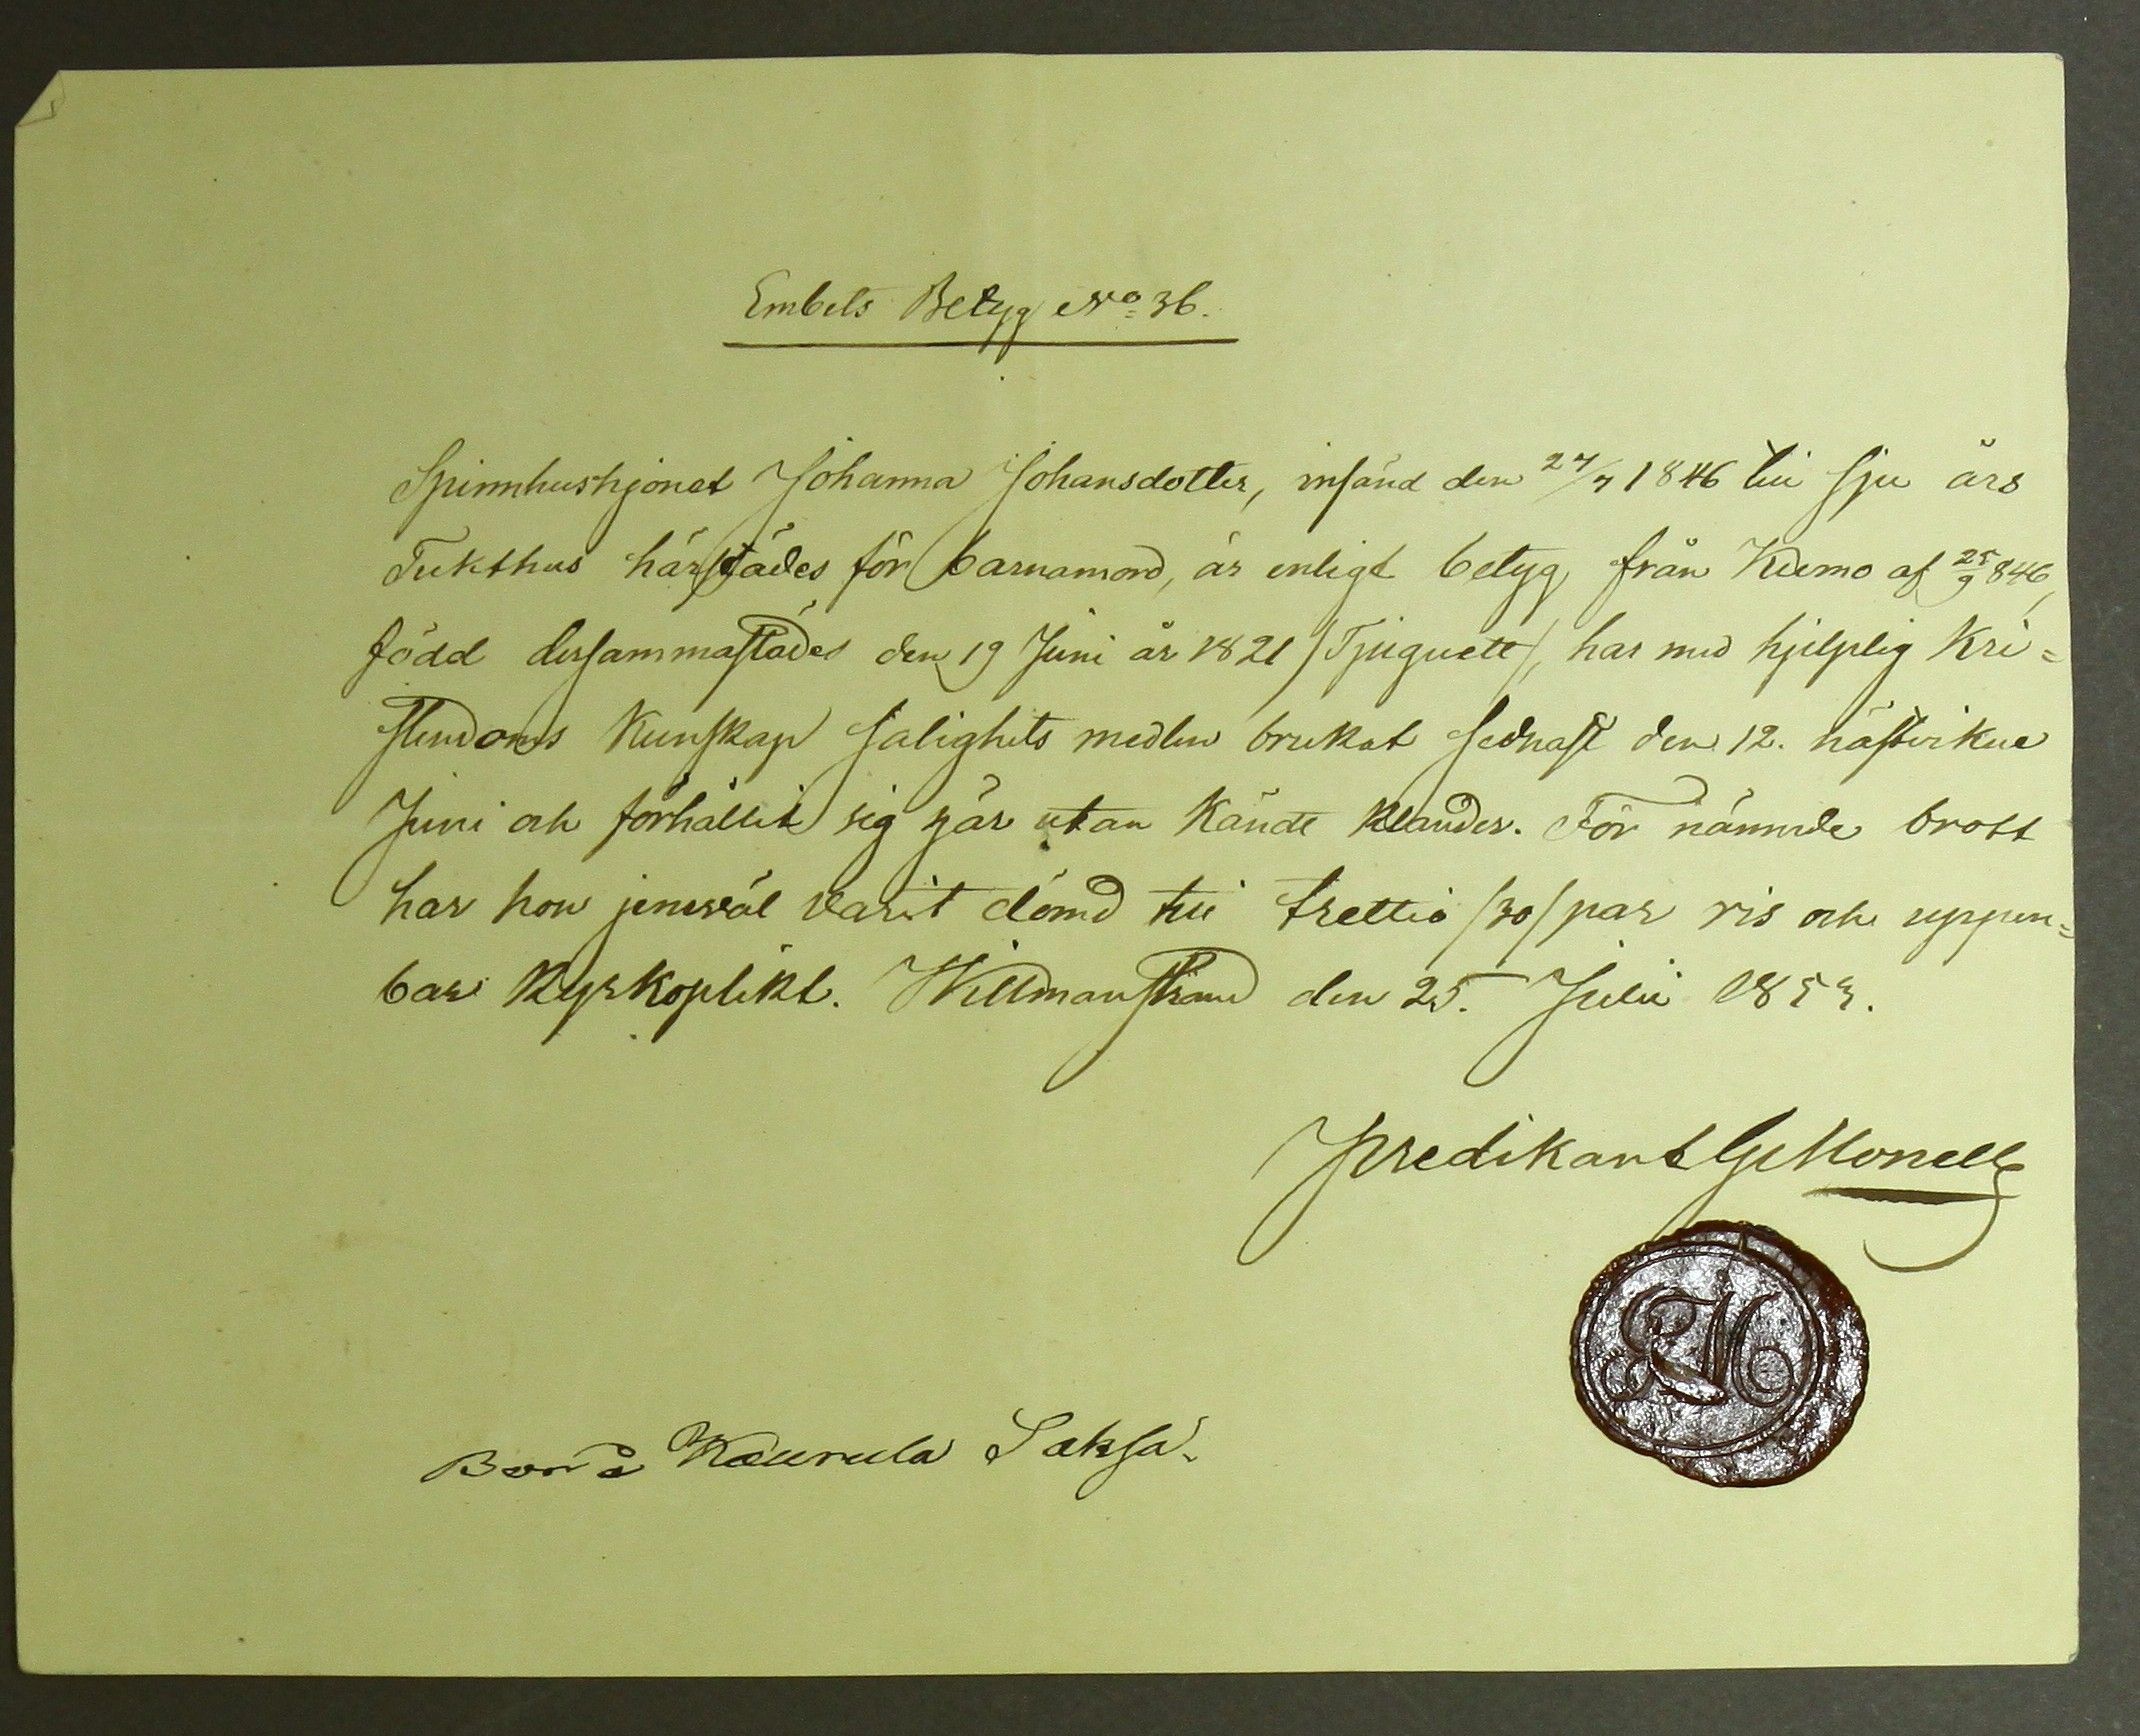 Embets Betyg No 36.
Spinnhushjonet Johanna Johansdotter, insänd den 27/7 1846 till sju års
Tukthus härstädes för barnamord, är enligt betyg från Kiumo af 25/9 846,
född dersammastädes den 19 Juni år 1821 /Tjuguett/, har med hjelplig Kri=
stendoms Kunskap salighets medlen brukat sednast den 12. nästvikne
Juni och förhållit sig här utan kändt klander. För nämnde brott
har hon jemväl varit dömd till trettio /30/ par ris och uppen=
bar Kyrkoplikt. Willmanstrand den 25. Julii 1853.
Predikant G Monell
GM
Kaurula Saksa.